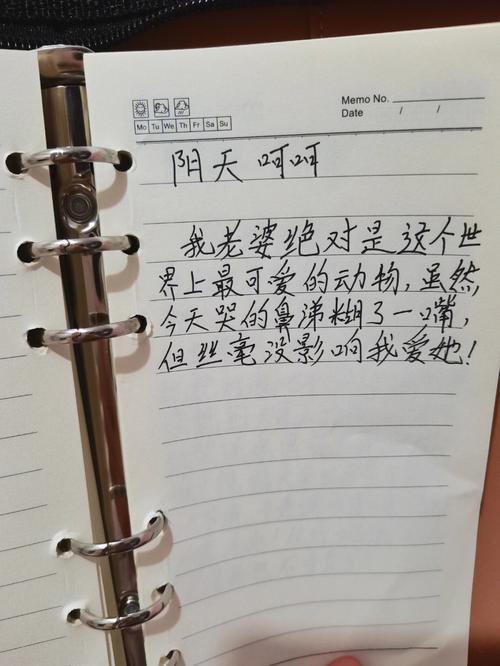 Memo No.
Mo Tu We Th Fr Sa Su
Date / /
阴天 呵呵
我老婆绝对是这个世
界上最可爱的动物,虽然
今天哭的鼻涕糊了一嘴,
但丝毫没影响我爱她!